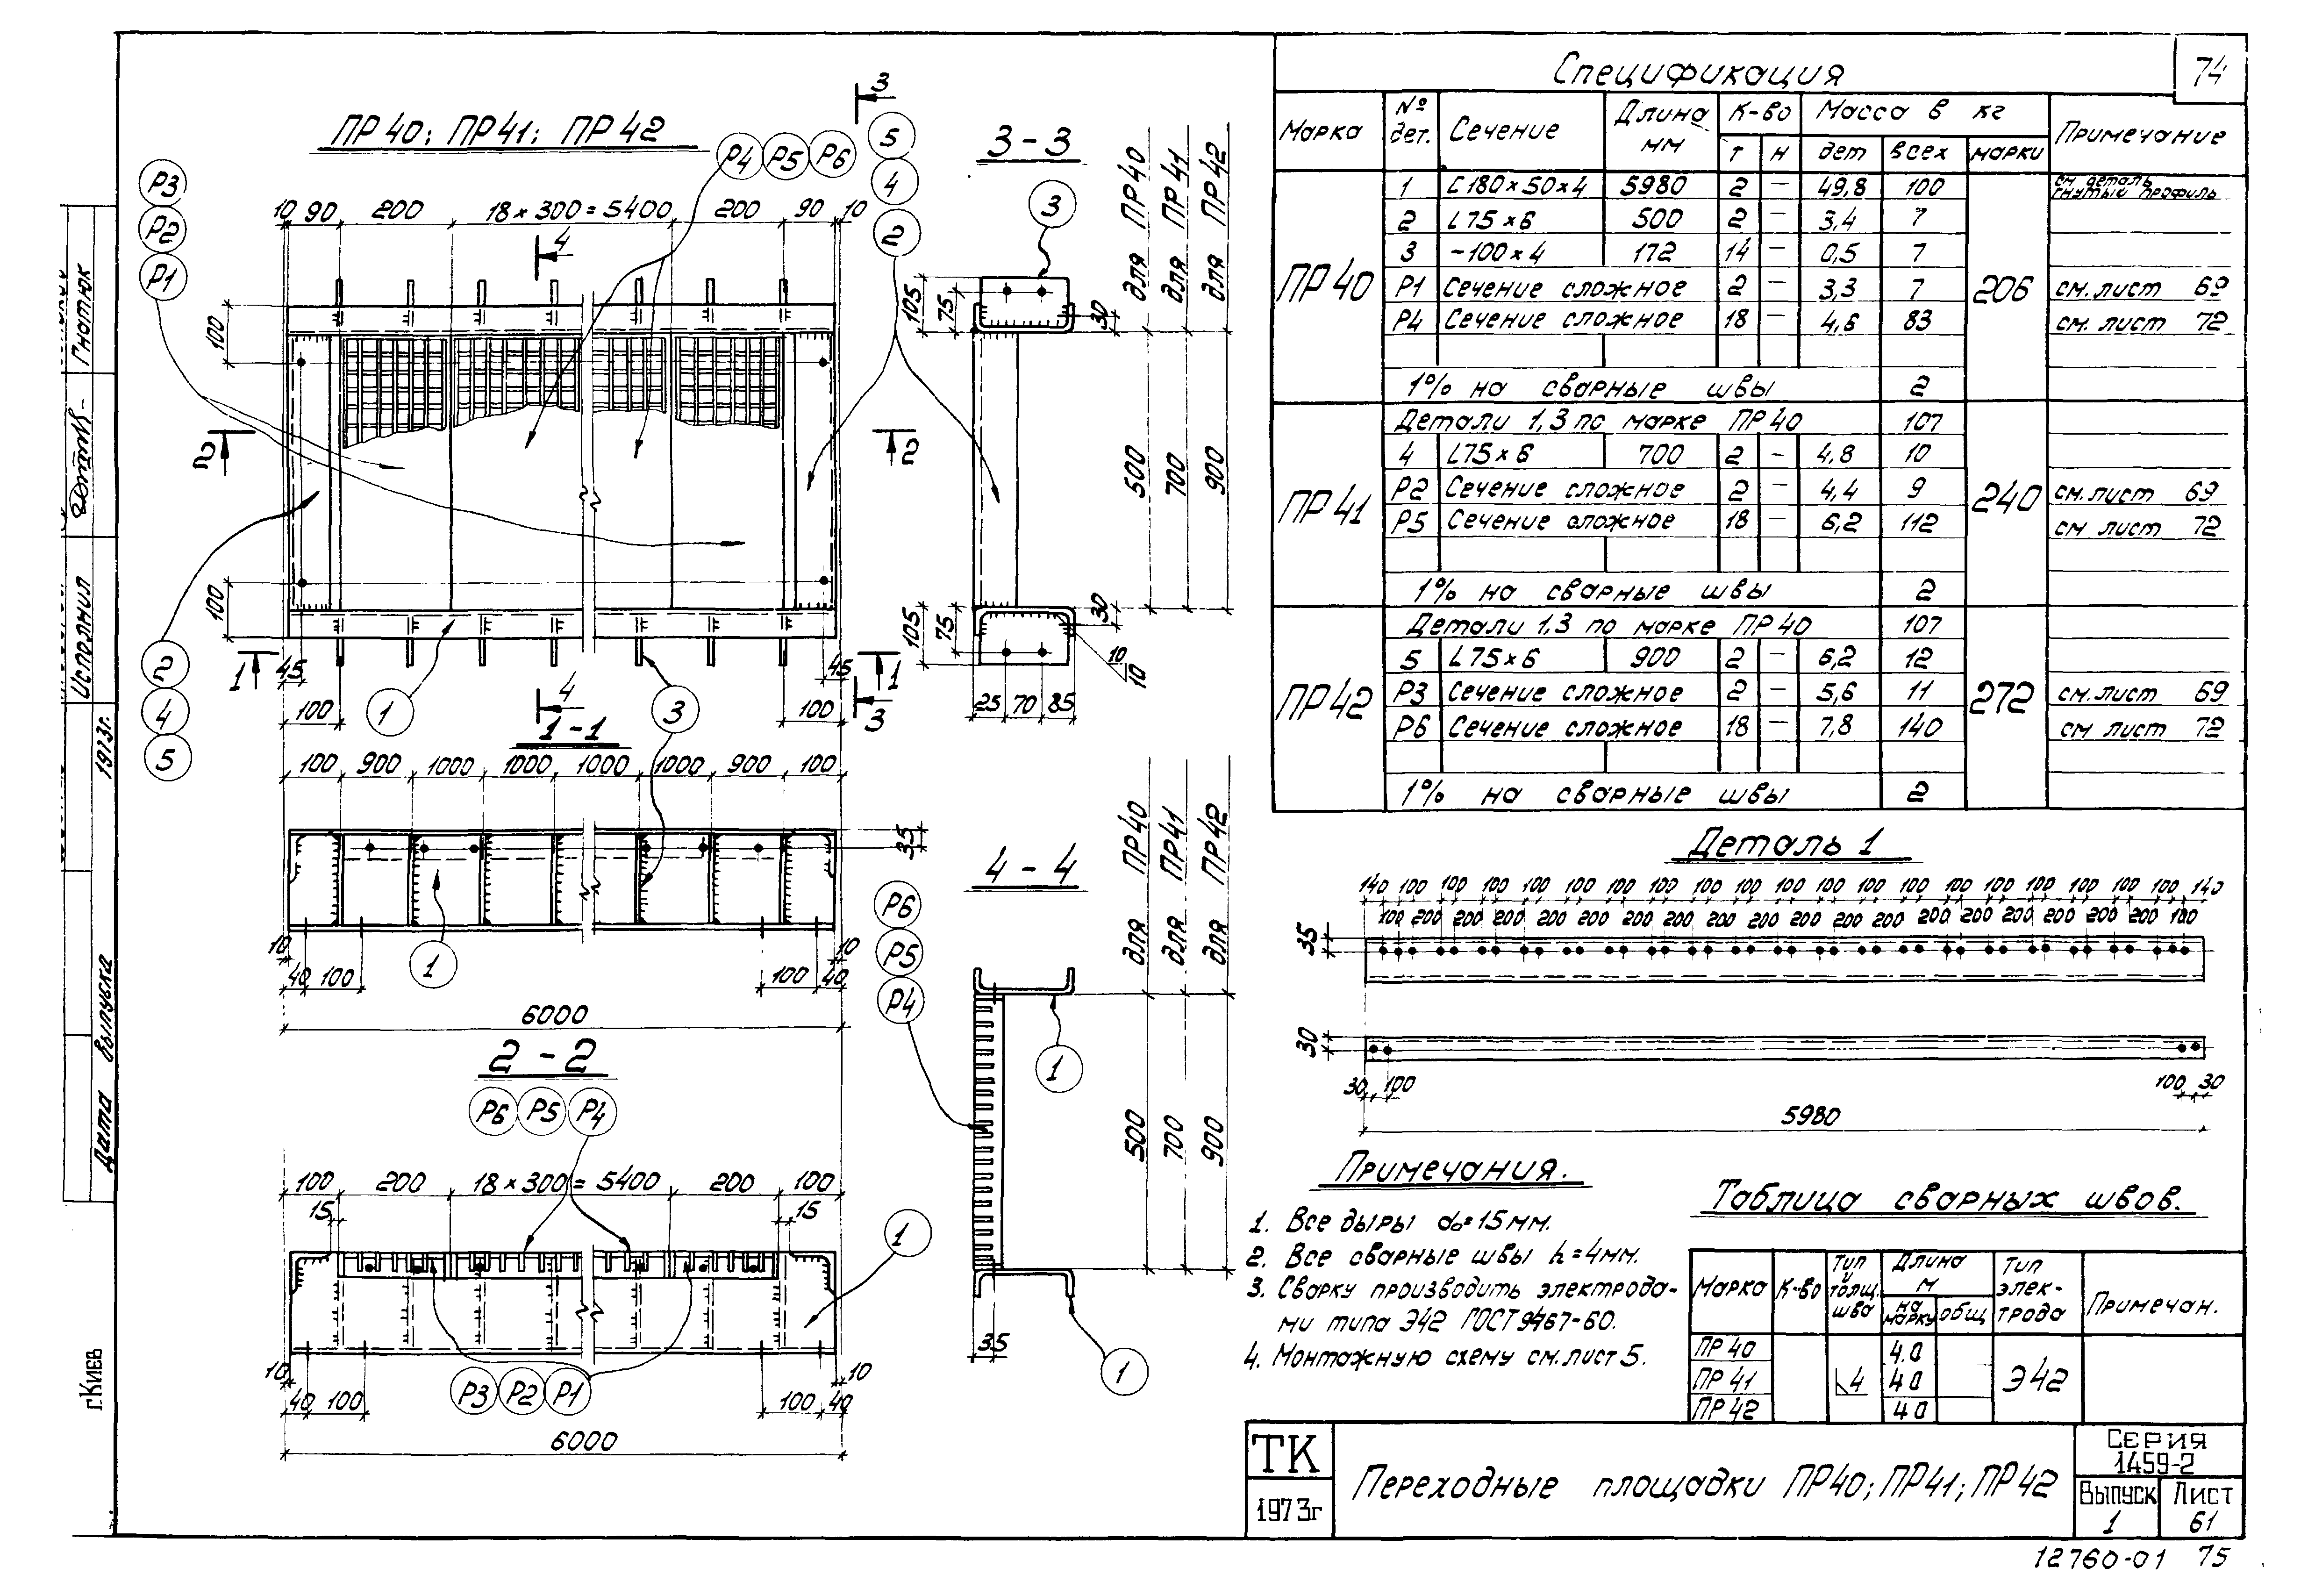 74
Спецификация
Марка № дет. Сечение Длина мм К-во Масса в кг Примечание
т н дет всех марки
ПР40 206
1 [180×50×4 5980 2 – 49,8 100 см деталь гнутый профиль
2 L75×6 500 2 – 3,4 7
3 -100×4 172 14 – 0,5 7
Р1 Сечение сложное 2 – 3,3 7 см.лист 69
Р4 Сечение сложное 18 – 4,6 83 см.лист 72
1% на сварные швы 2
ПР41 240
Детали 1,3 по марке ПР40 107
4 L75×6 700 2 - 4,8 10
Р2 Сечение сложное 2 – 4,4 9 см.лист 69
Р5 Сечение сложное 18 – 6,2 112 см лист 72
1% на сварные швы 2
ПР42 272
Детали 1,3 по марке ПР40 107
5 L75×6 900 2 – 6,2 12
Р3 Сечение сложное 2 – 5,6 11 см.лист 69
Р6 Сечение сложное 18 – 7,8 140 см лист 72
1% на сварные швы 2
ПР40; ПР41; ПР42
Р3
Р2
Р1
Р4 Р5 Р6
5
4
2
3
10 90 200 18×300=5400 200 90 10
4
100
2 2
100
1 45 45 1
100 1 4 3 100 3
2
4
5
1-1
100 900 1000 1000 1000 1000 900 100
35
10 10
40 100 1 100 40
6000
2-2
Р6 Р5 Р4
100 200 18×300=5400 200 100
15 15
1
10 10
40 100 Р3 Р2 Р1 100 40
6000
3-3
3
для ПР40
для ПР41
для ПР42
105 75 30
500 700 900
105 75 30
10
10
25 70 85
4-4
для ПР40
для ПР41
для ПР42
Р6
Р5
Р4
1
500 700 900
35
1
Деталь 1
140 100 100 100 100 100 100 100 100 100 100 100 100 100 100 100 100 100 100 100 140
100 200 200 200 200 200 200 200 200 200 200 200 200 200 200 200 200 200 200 100
35
30
30 100 100 30
5980
Примечания.
1. Все дыры d₀=15мм.
2. Все сварные швы h=4мм.
3. Сварку производить электрода-
ми типа Э42 ГОСТ 9467-60.
4. Монтажную схему см.лист 5.
Таблица сварных швов.
Марка К-во Тип и толщ. шва Длина м Тип элек-трода Примечан.
на марку общ
ПР40 4.0
ПР41 4 40 Э42
ПР42 40
ТК
1973г
Переходные площадки ПР40; ПР41; ПР42
Серия
1459-2
Выпуск Лист
1 61
12760-01 75
Гнатюк
Исполнил
1973г.
Дата выпуска
г.Киев